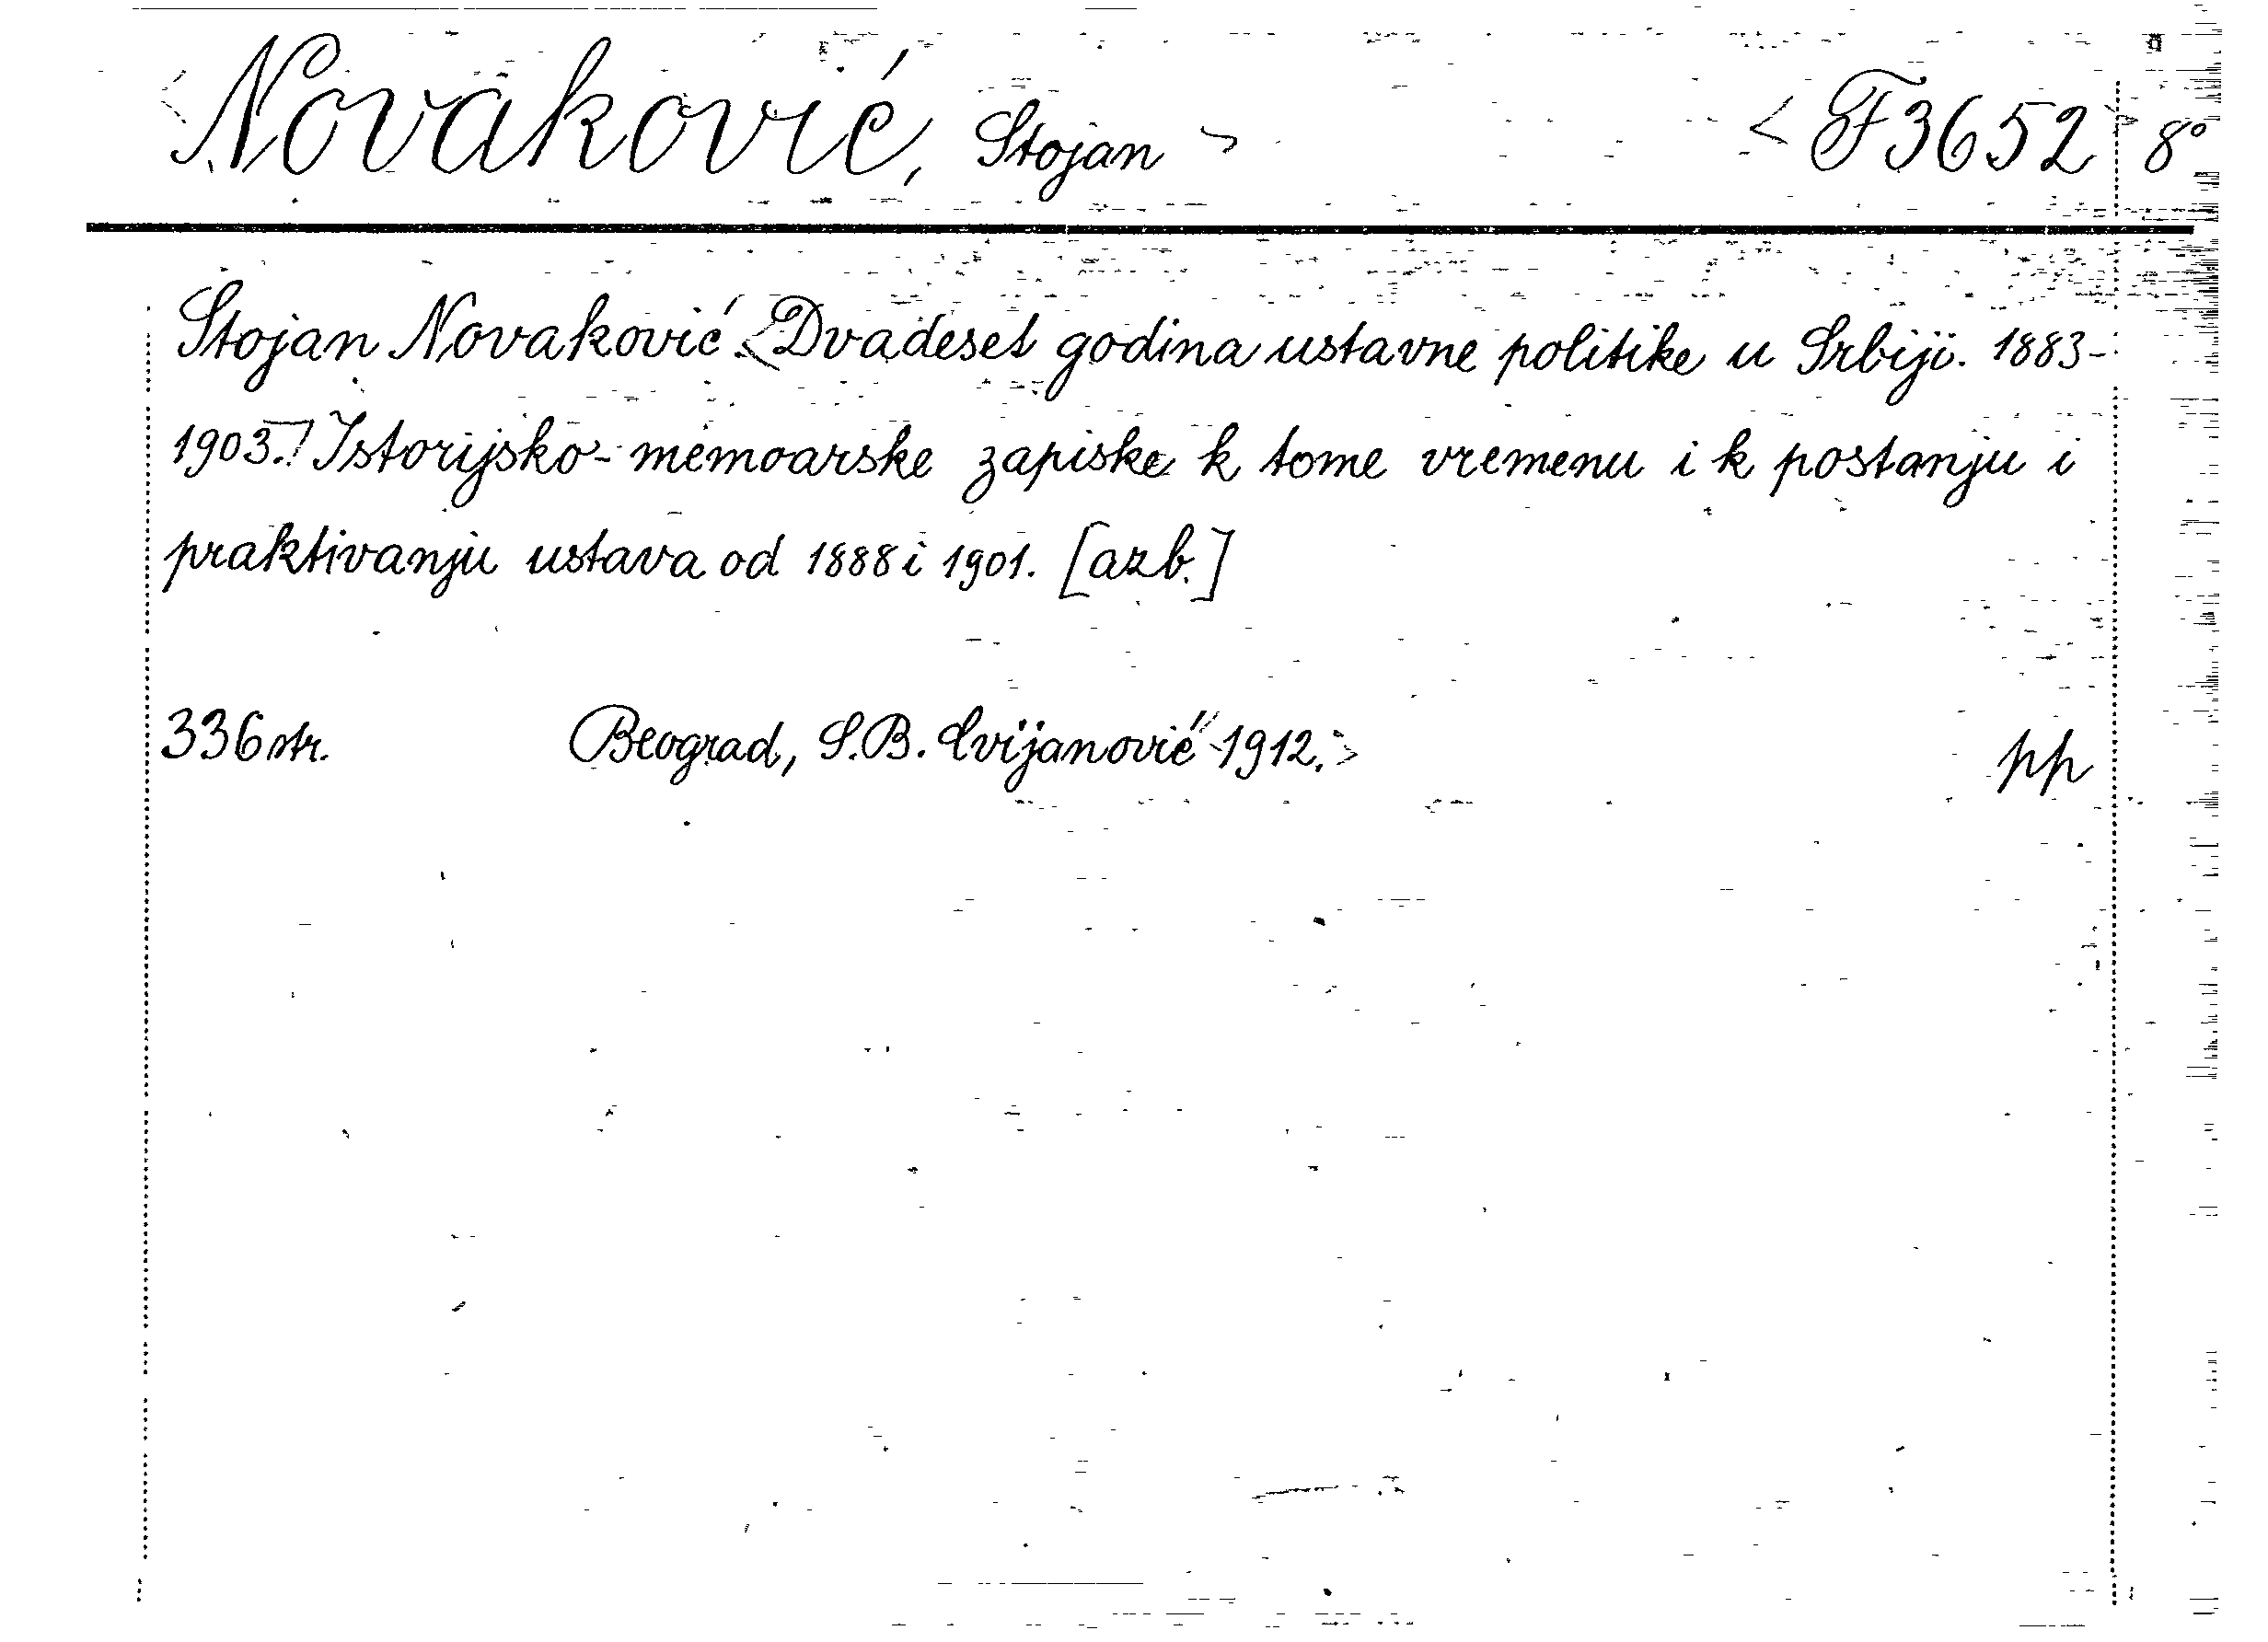 <Novaković, Stojan> <F 3652> 8°
Stojan Novaković. <Dvadeset godina ustavne politike u Srbiji. 1883-
1903.7 Istorijsko-memoarske zapiske k tome vremenu i k postanju i
praktivanju ustava od 1888 i 1901. [azb.]
336 str. Beograd, S. B. Cvijanović 1912.> pp